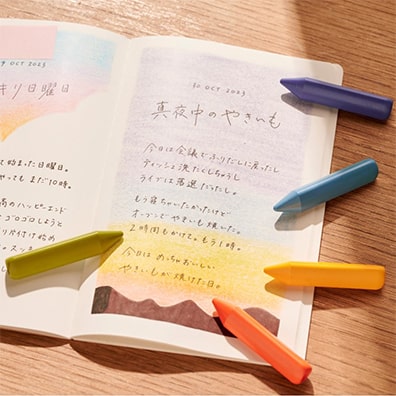 9 OCT 2023
キリ日曜日
て始まった日曜日。
やっても まだ10時。
のハッピーエンド
ゴロゴロしようと
り片付け始め
30 OCT 2023
真夜中のやきいも
今日は会議でふりだしに戻ったし
ティッシュ洗たくしちゃうし
ライブは落選だったし。
もう寝ちゃいたかったけど
オーブンでやきいも焼いた。
2時間もかけて。もう1時。
今日は めっちゃおいしい
やきいもが焼けた日。